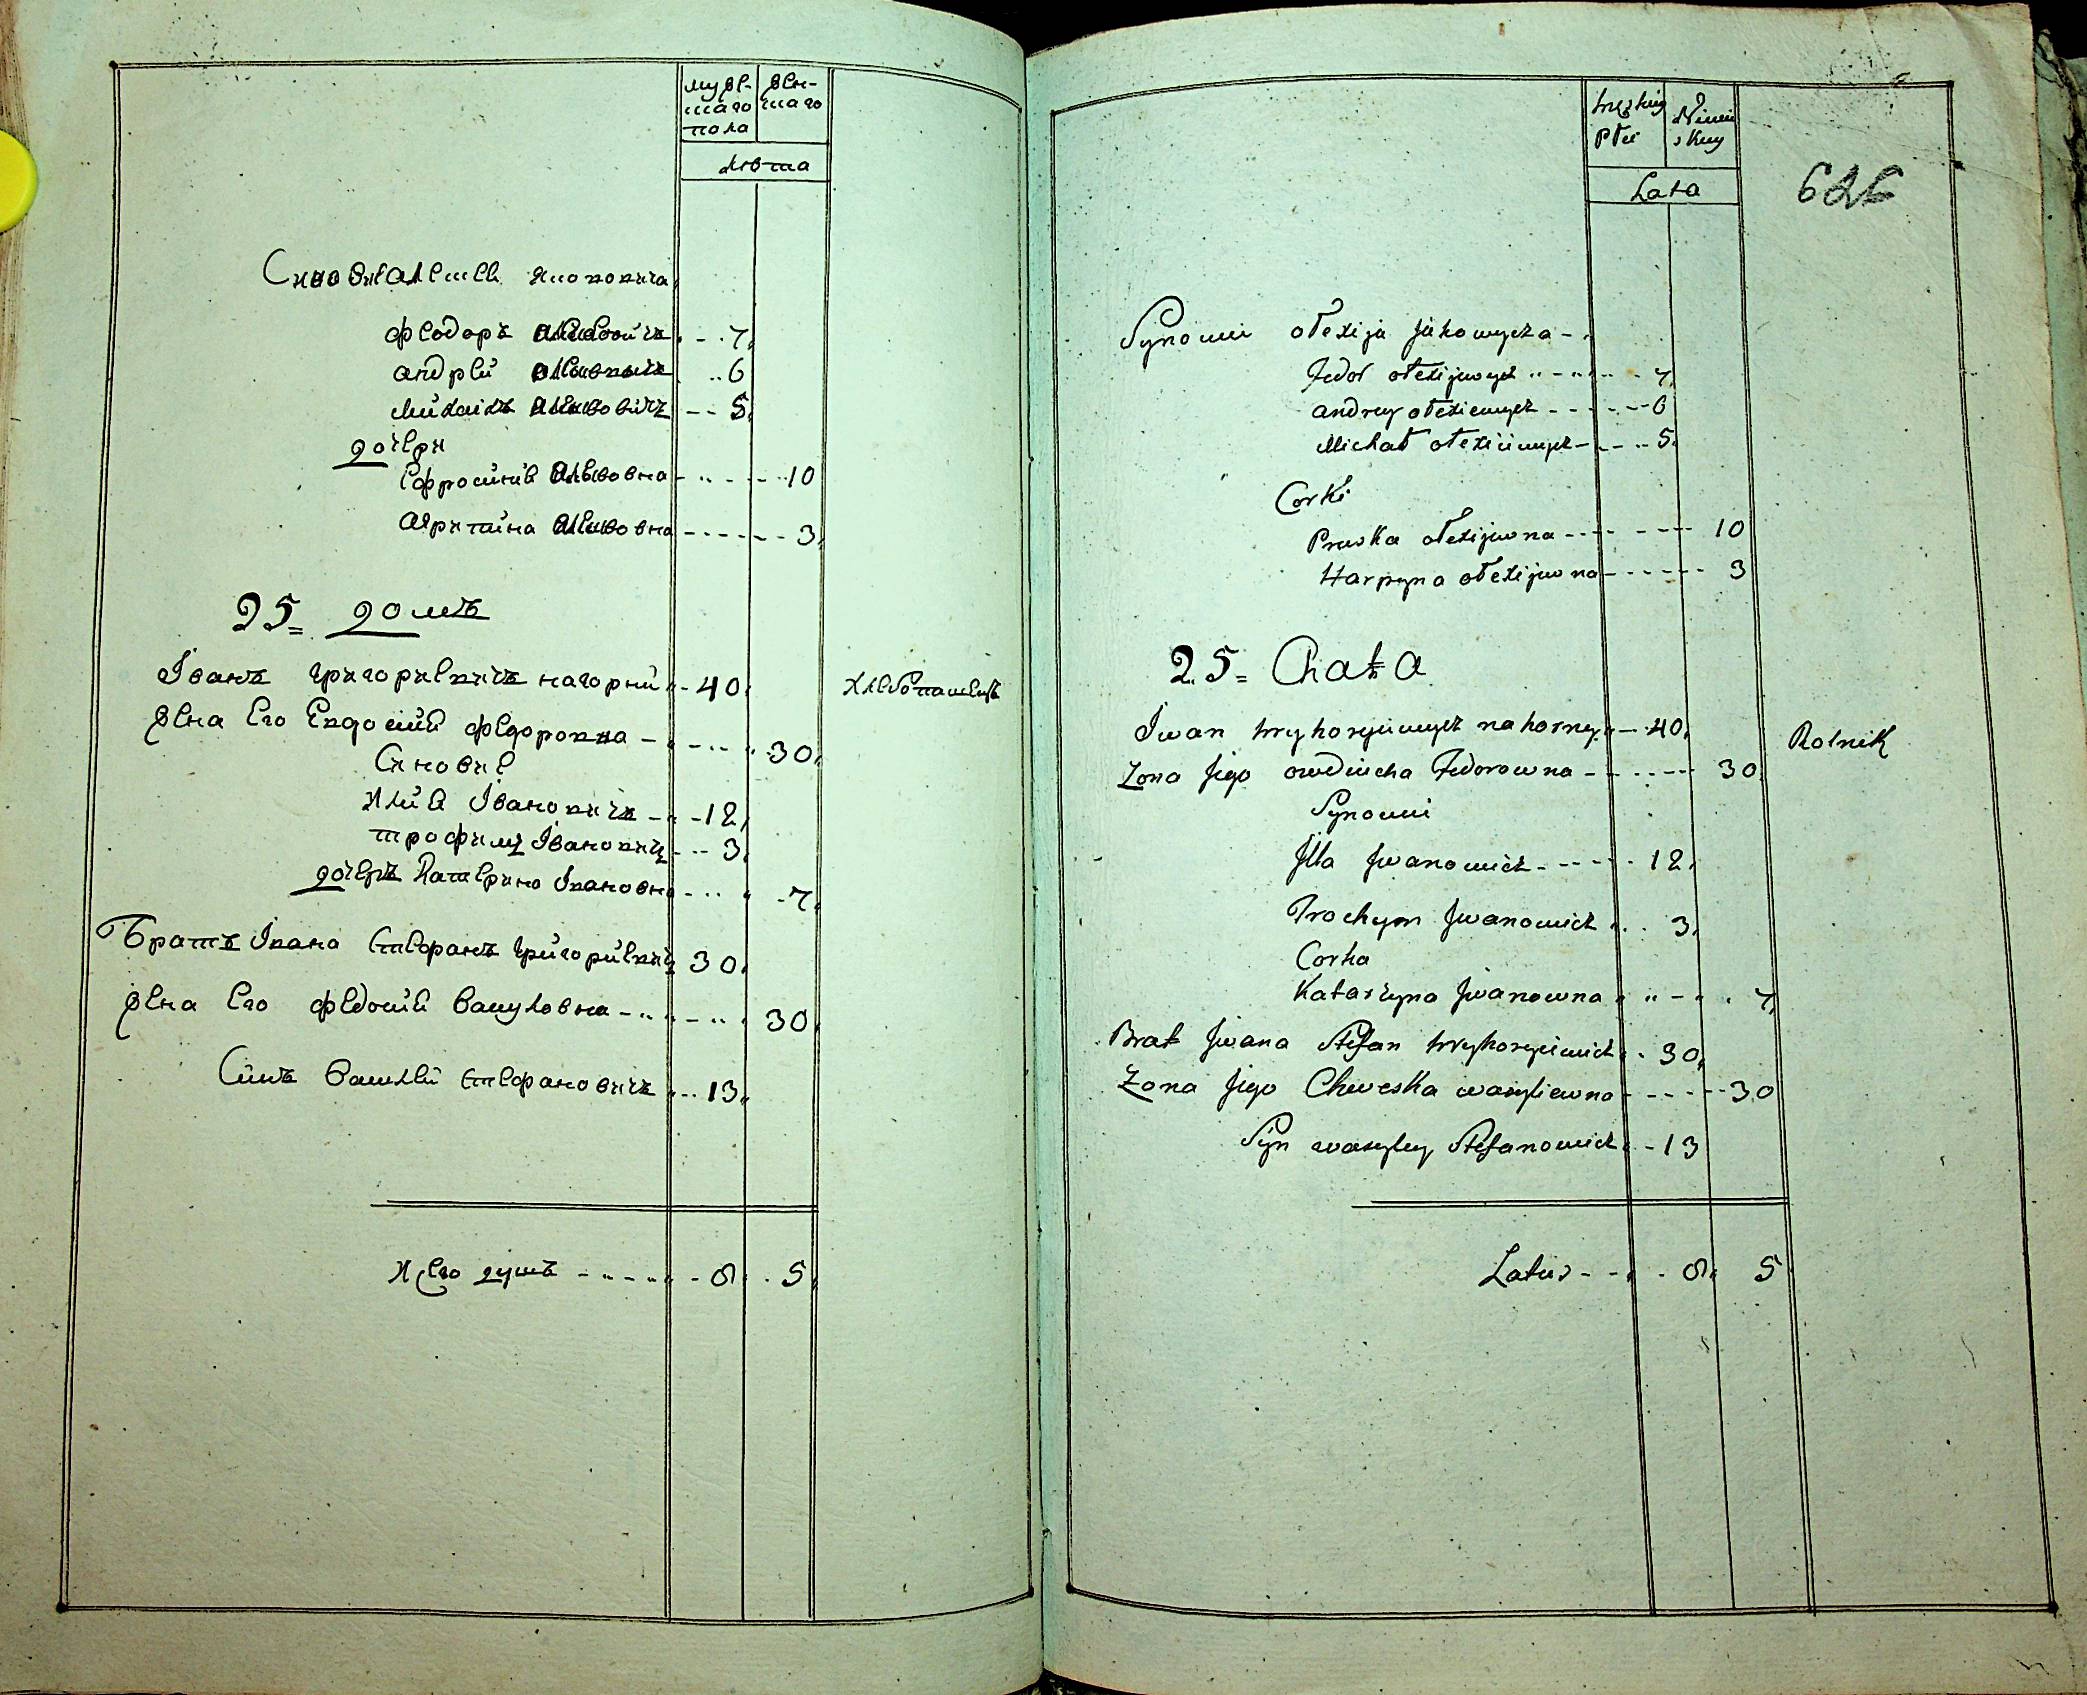 муже- жен-
скаго скаго
пола
лѣта
Синовя Алексея Яковича
Феодоръ Алексеевичъ - - 7
Андрей Алексеевичъ - - 6
Михаилъ Алексеевичъ - - 5
дочери
Ефросиния Алексеевна - - - - 10
Агрипина Алексеевна - - - - 3
25 = домъ
Іванъ Григориевичъ Нагорний - 40 Хлебопашецъ
Жена его Евдокия Федоровна - - - 30
Синовие
Илия Івановичъ - - 12
Трофимъ Івановичъ - - 3
дочеръ Катерина Івановна - - - 7
Братъ Івана Стефанъ Григориевичъ 30
Жена его Федосия Василовна - - - 30
Синъ Василей Стефановичъ - - 13
Всего душъ - - - - 8 - 5
626
męzkiej Niewie
płci skiey
Lata
Synowie Ołexija Jakowycza - -
Fedor Ołexijewycz - - - - 7
Andrey Ołexiewycz - - - - 6
Michał Ołexiiewycz - - - - 5
Corki
Pruska Ołexijewna - - - - 10
Harpyna Ołexijewna - - - - 3
25 = Chata
Iwan Hryhoryiewycz Nahorny - - 40 Rolnik
Zona Jego Owdiucha Fedorowna - - - - 30
Synowie
Jlla Jwanowicz - - - - 12
Trochym Jwanowicz - - 3
Corka
Katarzyna Jwanowna - - - 7
Brat Jwana Stefan Hryhoryiewicz - 30
Zona Jego Chweska Wasyliewna - - - - 30
Syn Wasyley Stefanowicz - - 13
Latus - - - 8 5